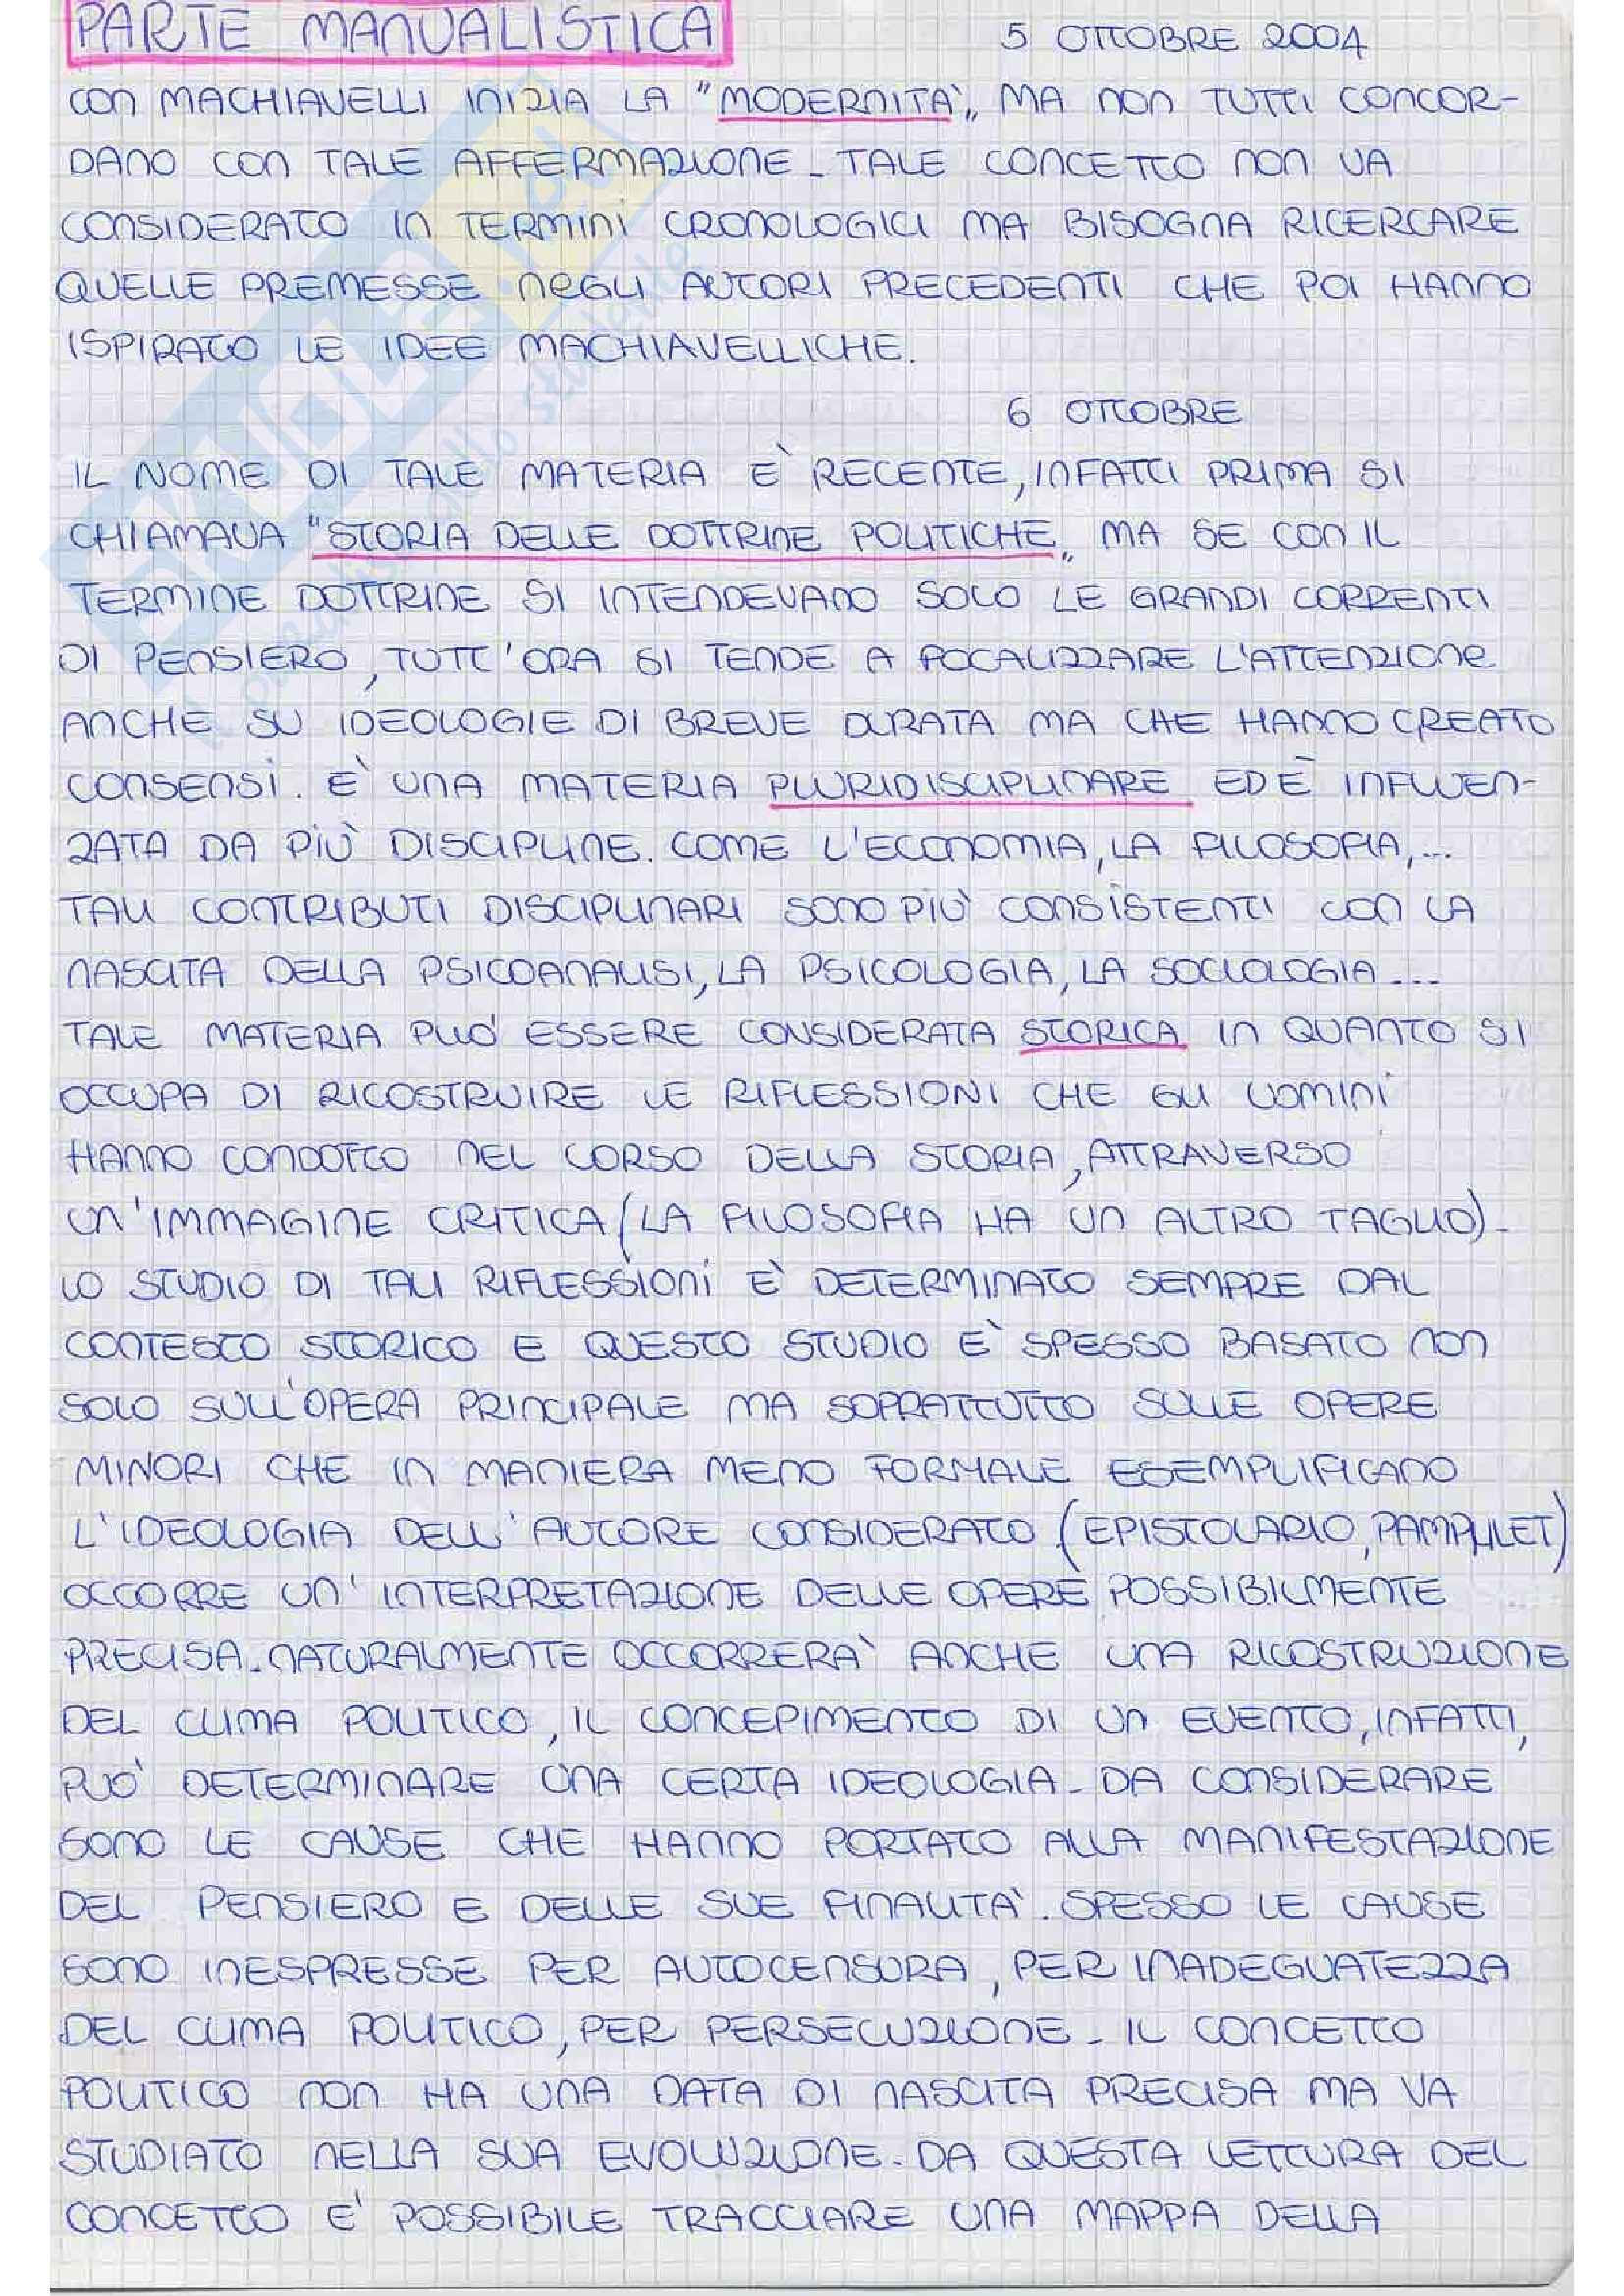 PARTE MANUALISTICA
5 OTTOBRE 2004
CON MACHIAVELLI INIZIA LA "MODERNITA'" MA NON TUTTI CONCOR-
DANO CON TALE AFFERMAZIONE - TALE CONCETTO NON VA
CONSIDERATO IN TERMINI CRONOLOGICI MA BISOGNA RICERCARE
QUELLE PREMESSE NEGLI AUTORI PRECEDENTI CHE POI HANNO
ISPIRATO LE IDEE MACHIAVELLICHE.
6 OTTOBRE
IL NOME DI TALE MATERIA E' RECENTE, INFATTI PRIMA SI
CHIAMAVA "STORIA DELLE DOTTRINE POLITICHE" MA SE CON IL
TERMINE DOTTRINE SI INTENDEVANO SOLO LE GRANDI CORRENTI
DI PENSIERO, TUTT'ORA SI TENDE A FOCALIZZARE L'ATTENZIONE
ANCHE SU IDEOLOGIE DI BREVE DURATA MA CHE HANNO CREATO
CONSENSI. E' UNA MATERIA PLURIDISCIPLINARE ED E' INFLUEN-
ZATA DA PIU' DISCIPLINE. COME L'ECONOMIA, LA FILOSOFIA,...
TALI CONTRIBUTI DISCIPLINARI SONO PIU' CONSISTENTI CON LA
NASCITA DELLA PSICOANALISI, LA PSICOLOGIA, LA SOCIOLOGIA...
TALE MATERIA PUO' ESSERE CONSIDERATA STORICA IN QUANTO SI
OCCUPA DI RICOSTRUIRE LE RIFLESSIONI CHE GLI UOMINI
HANNO CONDOTTO NEL CORSO DELLA STORIA, ATTRAVERSO
UN'IMMAGINE CRITICA (LA FILOSOFIA HA UN ALTRO TAGLIO) -
LO STUDIO DI TALI RIFLESSIONI E' DETERMINATO SEMPRE DAL
CONTESTO STORICO E QUESTO STUDIO E' SPESSO BASATO NON
SOLO SULL'OPERA PRINCIPALE MA SOPRATTUTTO SULLE OPERE
MINORI CHE IN MANIERA MENO FORMALE ESEMPLIFICANO
L'IDEOLOGIA DELL'AUTORE CONSIDERATO (EPISTOLARIO, PAMPHLET)
OCCORRE UN'INTERPRETAZIONE DELLE OPERE POSSIBILMENTE
PRECISA - NATURALMENTE OCCORRERA' ANCHE UNA RICOSTRUZIONE
DEL CLIMA POLITICO, IL CONCEPIMENTO DI UN EVENTO, INFATTI,
PUO' DETERMINARE UNA CERTA IDEOLOGIA - DA CONSIDERARE
SONO LE CAUSE CHE HANNO PORTATO ALLA MANIFESTAZIONE
DEL PENSIERO E DELLE SUE FINALITA'. SPESSO LE CAUSE
SONO INESPRESSE PER AUTOCENSURA, PER INADEGUATEZZA
DEL CLIMA POLITICO, PER PERSECUZIONE - IL CONCETTO
POLITICO NON HA UNA DATA DI NASCITA PRECISA MA VA
STUDIATO NELLA SUA EVOLUZIONE - DA QUESTA LETTURA DEL
CONCETTO E' POSSIBILE TRACCIARE UNA MAPPA DELLA